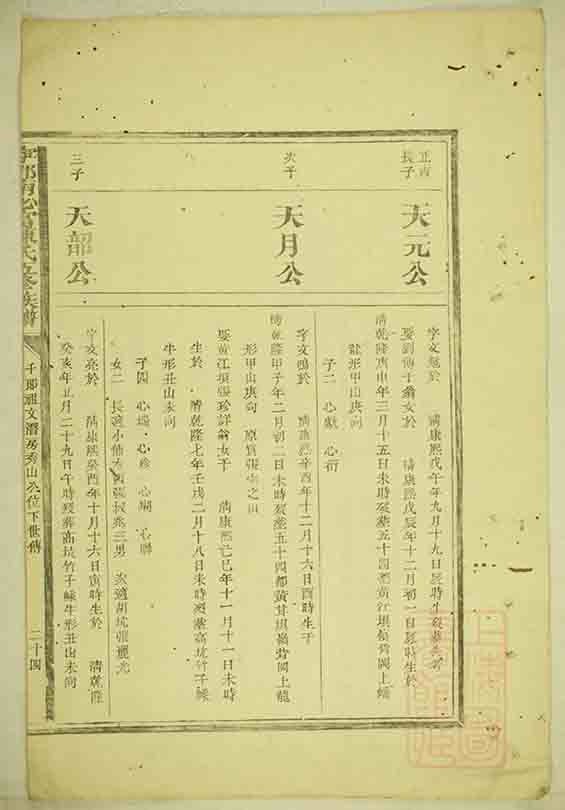 正古
長子
天元公
字文魁於 清康熙戊午年九月十九日辰時生
娶劉傳十翁女於 清康熙戊辰年十二月初一日辰時生於
清乾隆庚申年三月十五日未時歿葬五十四都黃茸垻嶺背園上
龍形甲山庚向
子二 心獻 心衍
次子
天月公
字文鳴於 清康熙辛酉年十二月十六日酉時生于
清乾隆甲子年二月初二日未時歿葬五十四都黃茸垻嶺背園上龍
形甲山庚向 原買張
娶黃江垻張珍詳翁女于 清康熙己巳年十一月十一日未時
生於 清乾隆七年壬戌二月十八日未時歿葬高坑竹子
牛形丑山未向
子四 心瑞 心珍 心瑚 心聯
女二 長適小
次適胡坑張
三子
天韶公
字文亮於 清康熙癸酉年十月十六日寅時生於 清乾隆
癸亥年正月二十九日午時歿葬高坑竹子 牛形丑山未向
陳氏五修族譜
千郎祖文潛房秀山公位下世傳
二十四